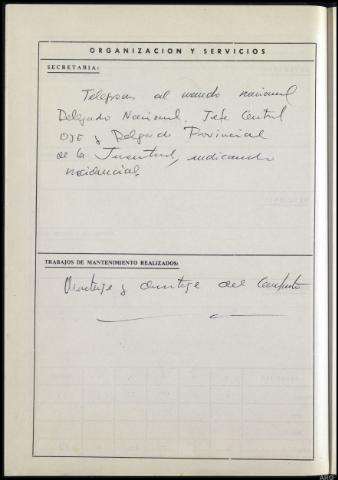 ORGANIZACION Y SERVICIOS
SECRETARIA:
Telegrama al mando nacional
Delegado Nacional. Jefe Central
OJE y Delegado Provincial
de la Juventud, indicando
incidencias.
TRABAJOS DE MANTENIMIENTO REALIZADOS:
Montaje y desmontaje del Campamento